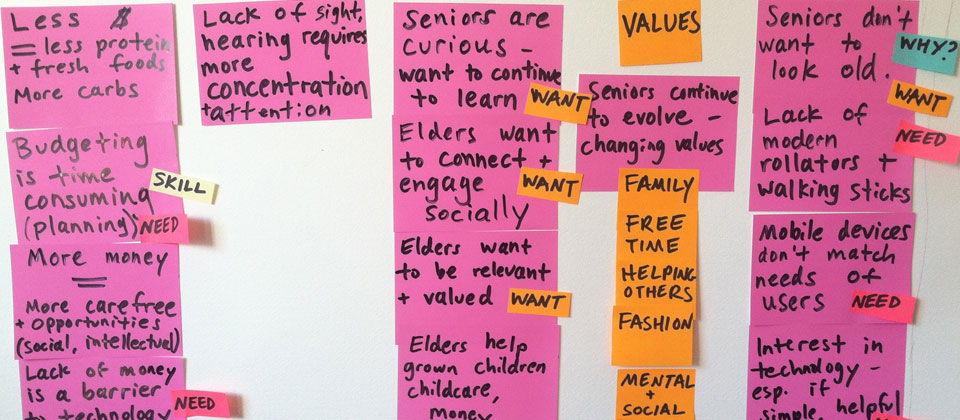 Less $
= less protein
+ fresh foods
More carbs
Budgeting
is time
consuming
(planning)
SKILL
NEED
More money
=
More carefree
+ opportunities
(social, intellectual)
Lack of money
is a barrier
to technology
NEED
Lack of sight,
hearing requires
more
concentration
+attention
Seniors are
curious –
want to continue
to learn
WANT
Elders want
to connect +
engage
socially
WANT
Elders want
to be relevant
+ valued
WANT
Elders help
grown children
childcare,
money
VALUES
Seniors continue
to evolve –
changing values
FAMILY
FREE
TIME
HELPING
OTHERS
FASHION
MENTAL
+
SOCIAL
Seniors don't
want to
look old.
WHY?
WANT
Lack of
modern
rollators +
walking sticks
NEED
Mobile devices
don't match
needs of
users
NEED
Interest in
technology –
esp. if
simple, helpful